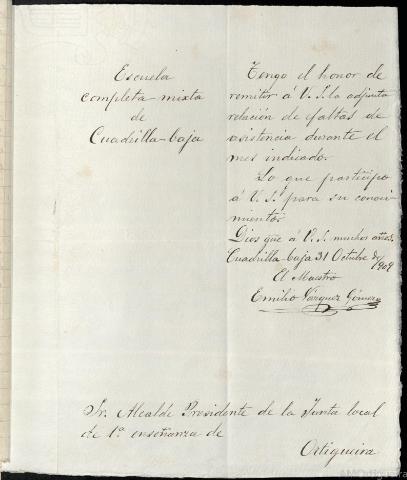 Escuela
completa mixta
de
Cuadrilla-baja
Tengo el honor de
remitir á V. S. la adjunta
relación de faltas de
asistencia durante el
mes indicado.
Lo que participo
á V. S. para su conoci-
miento.
Dios gue á V. S. muchos años.
Cuadrilla-baja 31 Octubre de
1909
El Maestro
Emilio Vázquez Gómez
Sr. Alcalde Presidente de la Junta local
de 1ª enseñanza de
Ortigueira
AMOrtigueira